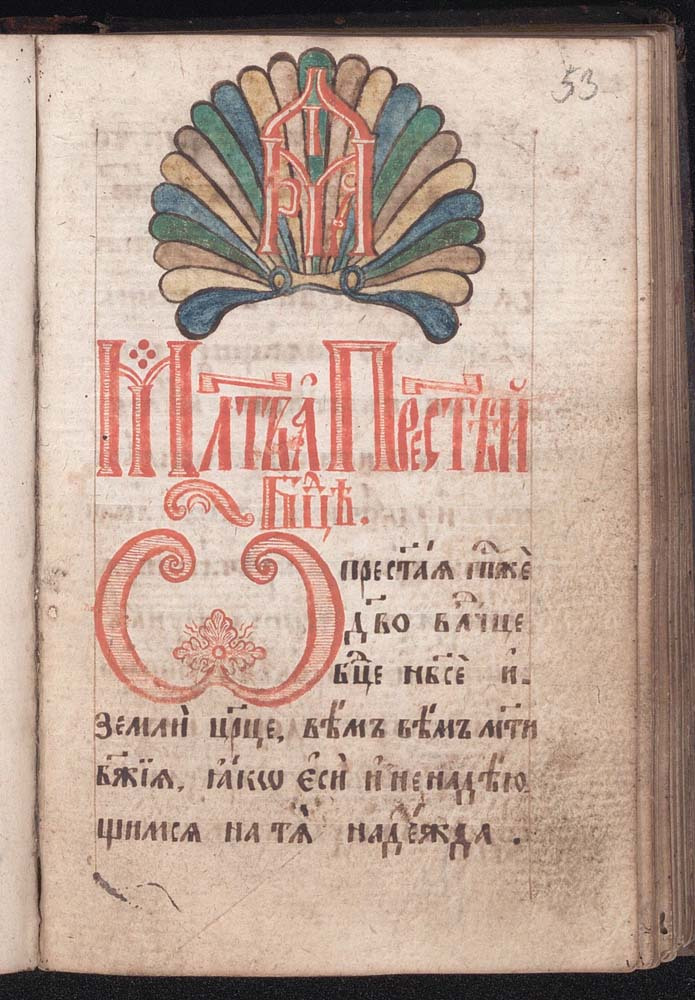 53
Мл҃тва Прест҃ѣй
Бцⷣѣ.
Ѡ прест҃ая гж҃е
дв҃о влⷣчце
бцⷣе нб҃сѐ и
землѝ црⷪ҇це, вѣ́мъ вѣ́мъ мт҃и
бж҃їѧ, ꙗ́кѡ є҆сѝ и҆ ненадѣ́ю
щимсѧ на тѧ̀ наде́жда .